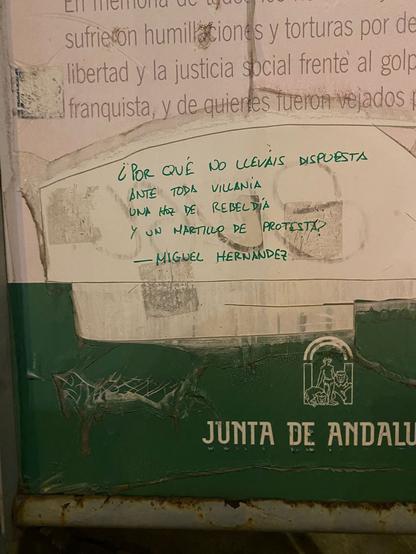 En memoria de
sufrieron humillaciones y torturas por de
libertad y la justicia social frente al golp
franquista, y de quienes fueron vejados p
¿POR QUÉ NO LLEVÁIS DISPUESTA
ANTE TODA VILLANÍA
UNA HOZ DE REBELDÍA
Y UN MARTILLO DE PROTESTA?
— MIGUEL HERNÁNDEZ
JUNTA DE ANDALU